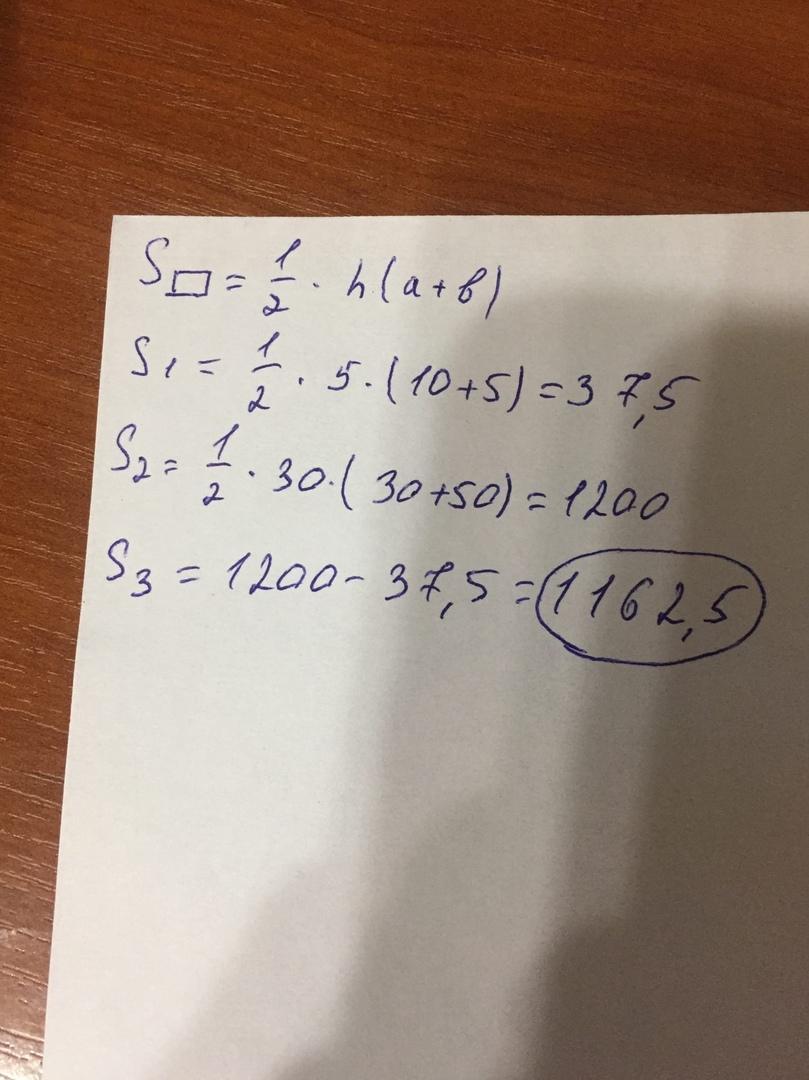 S▭ = 1/2 · h(a+b)
S1 = 1/2 · 5·(10+5)=37,5
S2= 1/2 · 30·(30+50)=1200
S3 = 1200-37,5=1162,5